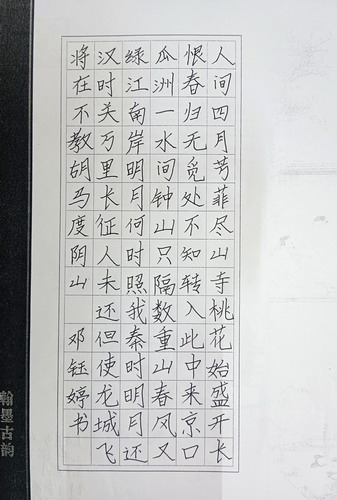 人间四月芳菲尽山寺桃花始盛开长
恨春归无觅处不知转入此中来京口
瓜洲一水间钟山只隔数重山春风又
绿江南岸明月何时照我秦时明月还
汉时关万里长征人未还但使龙城飞
将在不教胡马度阴山
邓钰婷书
翰墨古韵